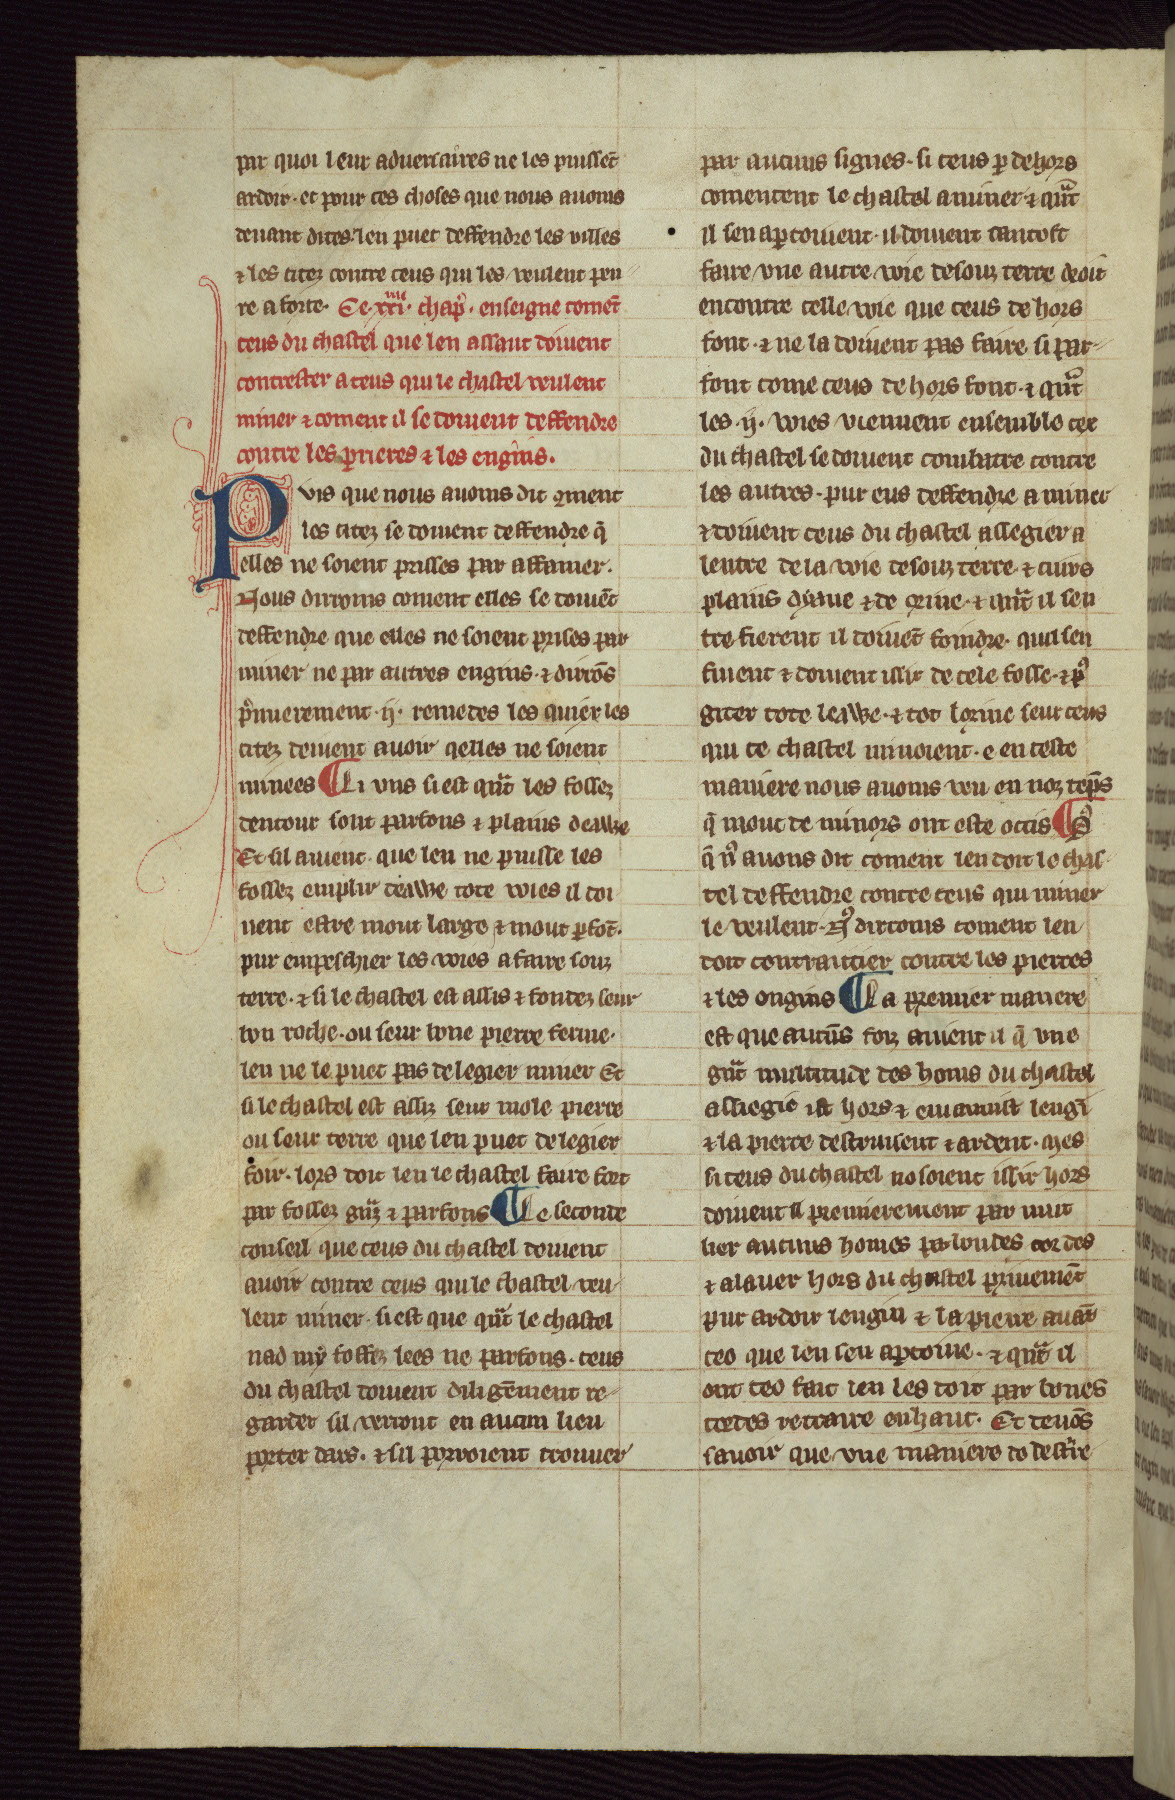 par quoi leur aduersaires ne les puissēt
ardoir· et pour ces choses que nous auons
deuant dites len puet deffendre les villes
⁊ les citez contre ceus qui les veulent pren-
re a force· Ce·xxi·ͥͥͥͥ chap̄· enseigne comēt
ceus du chastel que len assaut doiuent
contrester a ceus qui le chastel veulent
miner ⁊ coment il se doiuent deffendre
contre les prieres ⁊ les engins.
Puis que nous auons dit ꝯment
les citez se doiuent deffendre q̄
elles ne soient prises par affamer.
Nous dirrons coment elles se doiuēt
deffendre que elles ne soient prises par
miner ne par autres engins·⁊ dirrōs
p̄mierement·ij· remedes les quier les
citez deiuent auoir qelles ne soient
minees ¶ Li vns si est qūt les fossez
dentour sont parfons ⁊ plains deawe
Et sil auient que len ne puisse les
fossez emplir deawe tote voies il doi
uent estre mout large ⁊ mout ꝑfōt·
pur empeschier les voies a faire souz
terre·⁊ si le chastel est assis ⁊ fondez seur
bon roche·ou seur bone pierre ferme·
len ne le puet pas de legier miner Et
si le chastel est assiz seur mole pierre
ou seur terre que len puet de legier
foir·lors doit len le chastel faire fort
par fossez gūz ⁊ parfons ¶ Le seconde
conseil que ceus du chastel doiuent
auoir contre ceus qui le chastel veu-
lent miner·si est que qūt le chastel
nad my fossez lees ne parfons·ceus
du chastel doiuent diligēment re-
garder sil verront en aucun lieu
porter dars·⁊ sil porroient trouuer
par aucuns signes·si ceus ꝑ dehors
comencent le chastel a miner·⁊ qūt
il sen aparcoiuent·il doiuent tantost
faire vne autre voie desouz terre droit
encontre celle voie que ceus dehors
font·⁊ ne la doiuent pas faire si par-
font come ceus dehors font·⁊ qūt
les·ij· voies viennent ensemble cex
du chastel se doiuent combatre contre
les autres·pur eus deffendre a miner
⁊ doiuent ceus du chastel assegier a
lentre de la voie desouz terre·⁊ cuirs
plains dyaue ⁊ de orine·⁊ qūt il sen
tre fierent il doiuēt foindre·quil sen
fuient ⁊ doiuent issir de cele fosse·⁊ pꝰ
giter tote leawe·⁊ tot lorine seur ceus
qui ce chastel minoient·e en ceste
maniere nous auons veu en noz tēps
q̄ mout de minors ont este occis ¶ Pꝰ
q̄ nꝰ auons dit coment len doit le chas-
tel deffendre contre ceus qui miner
le veulent·Nꝰ dirrons coment len
doit contraitier contre les pierres
⁊ les engins ¶ La premier manere
est que aucūs foiz auient il q̄ vne
gūt multitude des homs du chastel
assiegie ist hors ⁊ enuaūist lengī
⁊ la pierre destruisent ⁊ ardent·Mes
si ceus du chastel no soient issir hors
doiuent il premierement par nuit
lier aucuns homes par bondes cordes
⁊ alauer hors du chastel priuemēt
pur ardoir lengin ⁊ la pierre auāt
ceo que len sen aꝑcoiue·⁊ qūt il
ont ceo fait len les doit par bones
cordes retraire enhaut· Et deuōs
sauoir que vne maniere de deffēre